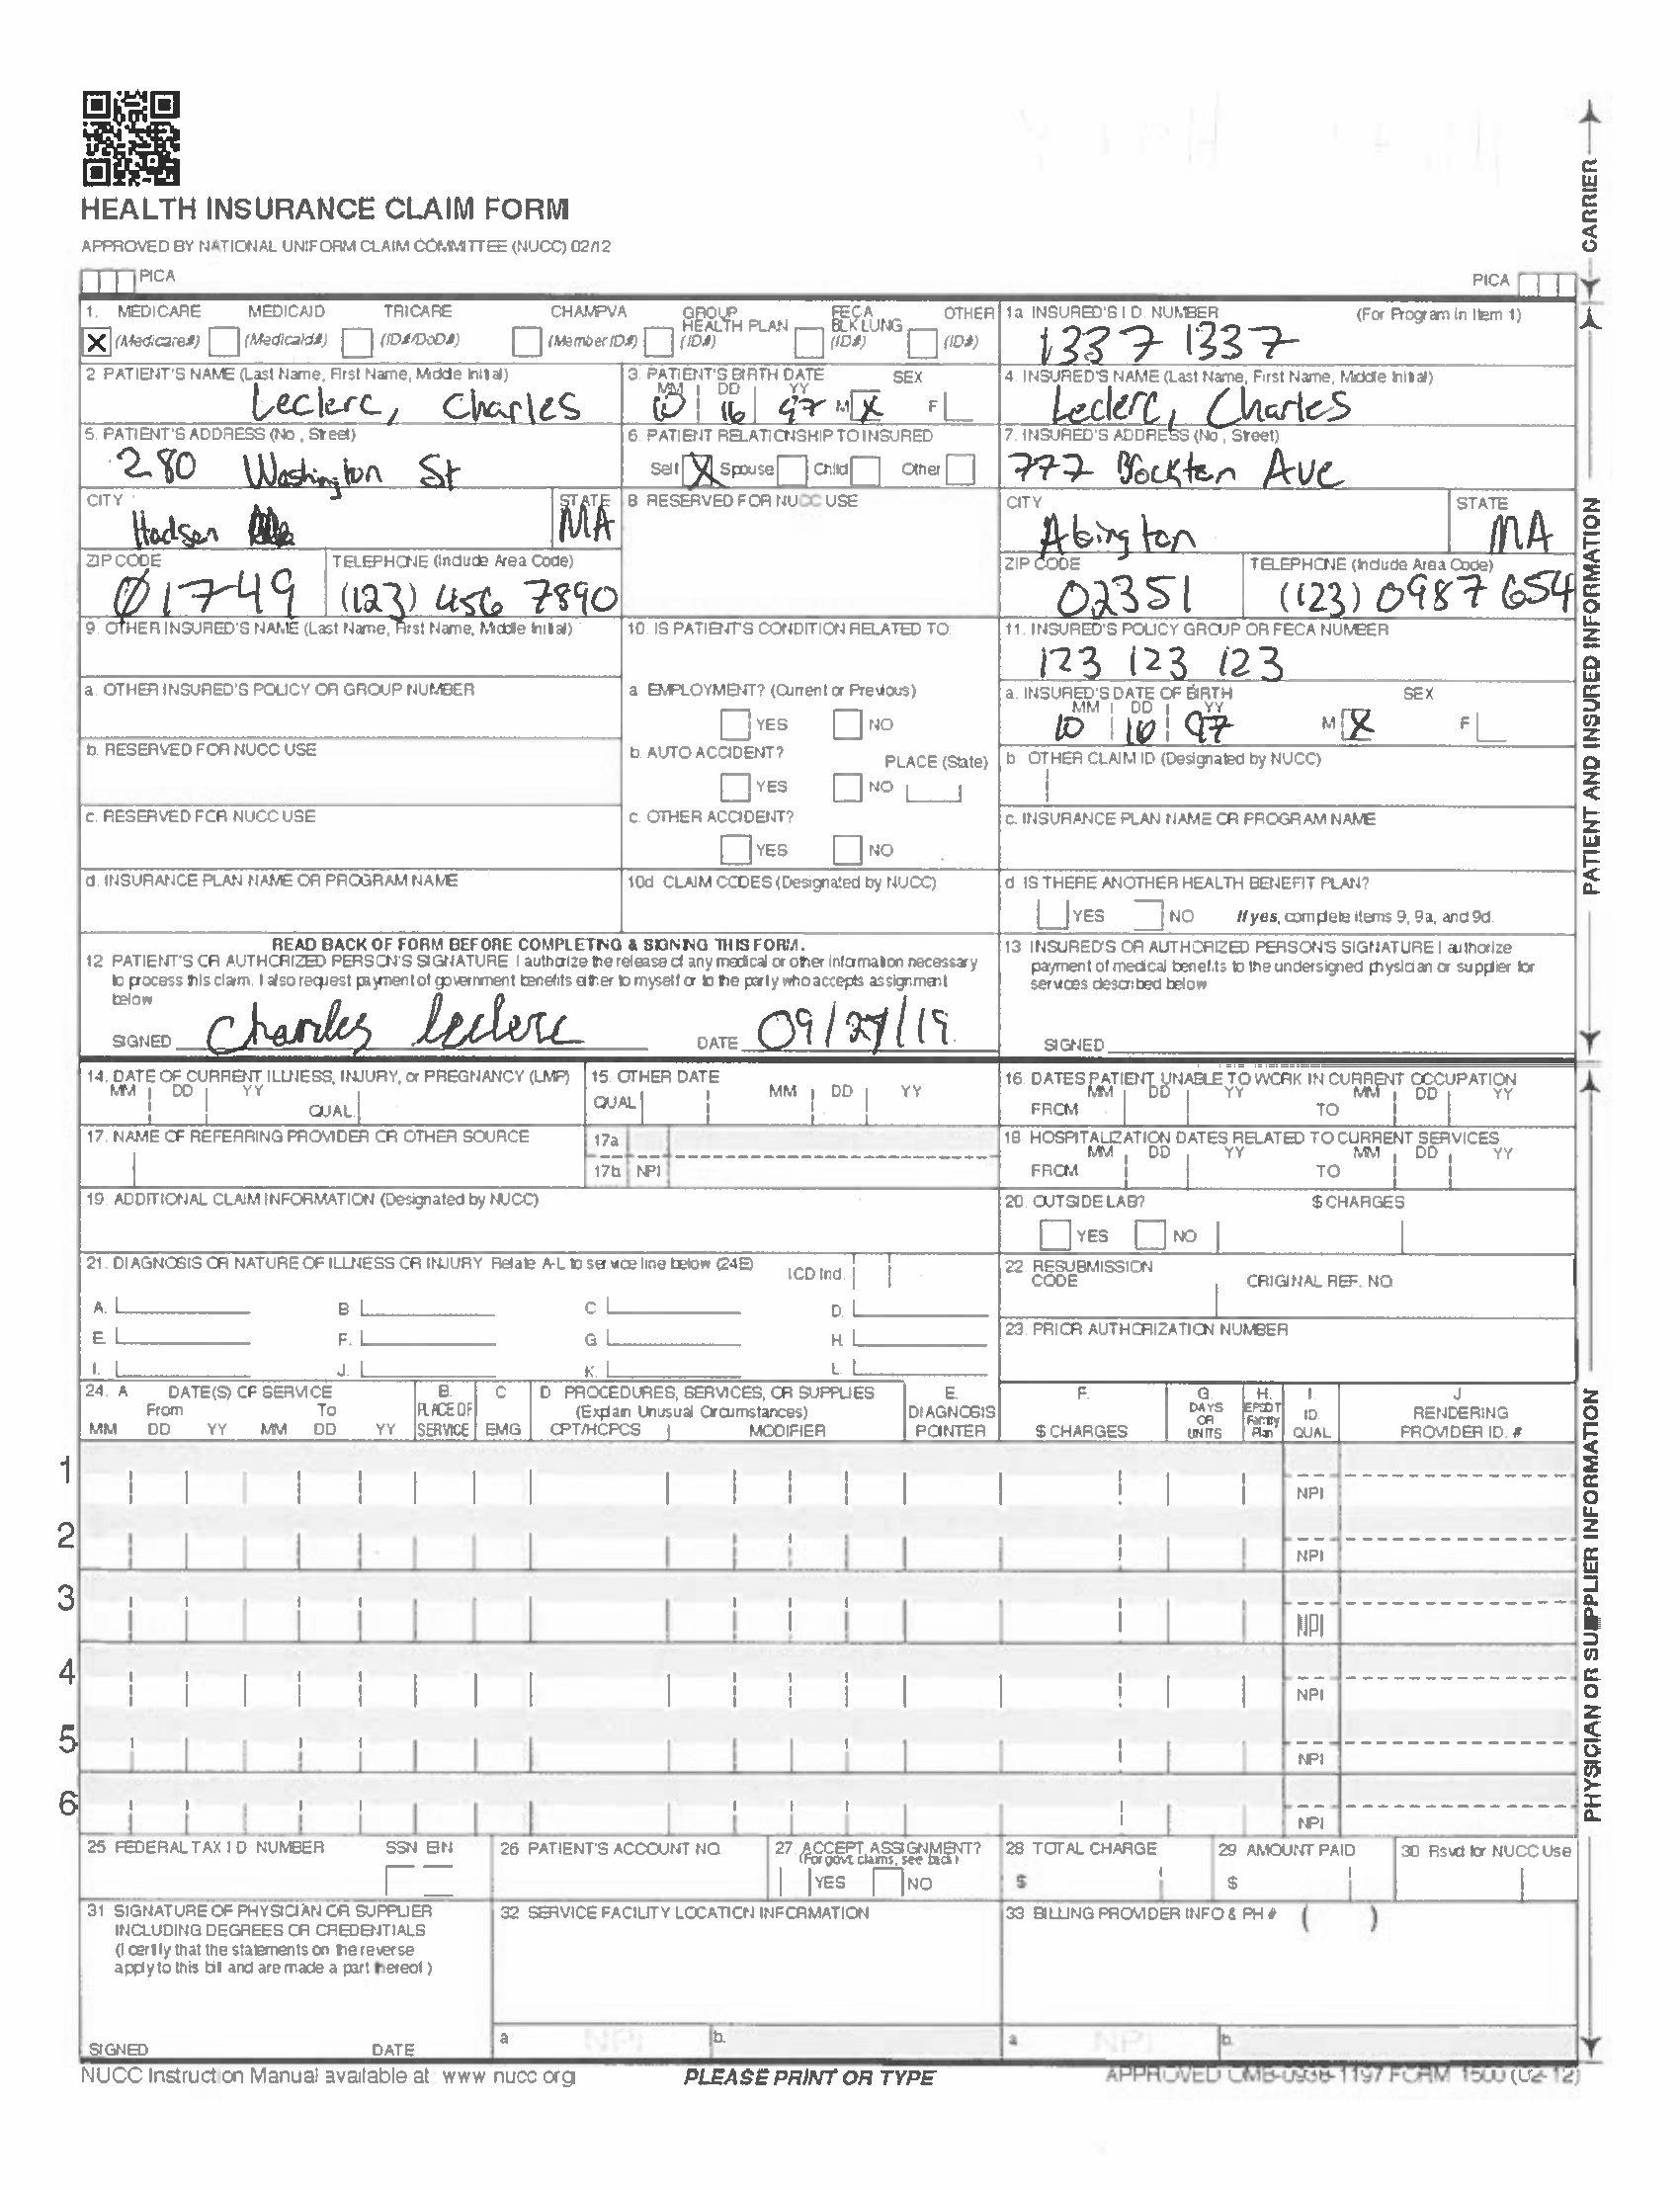 HEALTH INSURANCE CLAIM FORM
APPROVED BY NATIONAL UNIFORM CLAIM COMMITTEE (NUCC) 02/12
PICA
PICA
CARRIER
1. MEDICARE MEDICAID TRICARE CHAMPVA GROUP HEALTH PLAN FECA BLK LUNG OTHER
X (Medicare#) (Medicaid#) (ID#/DoD#) (Member ID#) (ID#) (ID#) (ID#)
1a INSURED'S I D. NUMBER (For Program in Item 1)
1337 1337
2 PATIENT'S NAME (Last Name, First Name, Middle Initial)
Leclerc, Charles
3. PATIENT'S BIRTH DATE SEX
MM DD YY
10 16 97 M X F
4. INSURED'S NAME (Last Name, First Name, Middle Initial)
Leclerc, Charles
5. PATIENT'S ADDRESS (No, Street)
280 Washington St
6. PATIENT RELATIONSHIP TO INSURED
Self X Spouse Child Other
7. INSURED'S ADDRESS (No, Street)
777 Brockton Ave
CITY STATE
Hudson MA
8 RESERVED FOR NUCC USE
CITY STATE
Abington MA
ZIP CODE TELEPHONE (Include Area Code)
01749 (123) 456 7890
ZIP CODE TELEPHONE (Include Area Code)
02351 (123) 0987 654
9. OTHER INSURED'S NAME (Last Name, First Name, Middle Initial)
10. IS PATIENT'S CONDITION RELATED TO
11. INSURED'S POLICY GROUP OR FECA NUMBER
123 123 123
a. OTHER INSURED'S POLICY OR GROUP NUMBER
a EMPLOYMENT? (Current or Previous)
YES NO
a. INSURED'S DATE OF BIRTH SEX
MM DD YY
10 16 97 M X F
b. RESERVED FOR NUCC USE
b. AUTO ACCIDENT? PLACE (State)
YES NO
b OTHER CLAIM ID (Designated by NUCC)
c. RESERVED FOR NUCC USE
c. OTHER ACCIDENT?
YES NO
c. INSURANCE PLAN NAME OR PROGRAM NAME
d. INSURANCE PLAN NAME OR PROGRAM NAME
10d CLAIM CODES (Designated by NUCC)
d IS THERE ANOTHER HEALTH BENEFIT PLAN?
YES NO If yes, complete items 9, 9a, and 9d.
PATIENT AND INSURED INFORMATION
READ BACK OF FORM BEFORE COMPLETING & SIGNING THIS FORM.
12 PATIENT'S OR AUTHORIZED PERSON'S SIGNATURE I authorize the release of any medical or other information necessary
to process this claim. I also request payment of government benefits either to myself or to the party who accepts assignment
below
SIGNED Charles Leclerc DATE 09/27/19
13 INSURED'S OR AUTHORIZED PERSON'S SIGNATURE I authorize
payment of medical benefits to the undersigned physician or supplier for
services described below
SIGNED
14. DATE OF CURRENT ILLNESS, INJURY, or PREGNANCY (LMP)
MM DD YY QUAL
15. OTHER DATE
QUAL MM DD YY
16. DATES PATIENT UNABLE TO WORK IN CURRENT OCCUPATION
MM DD YY MM DD YY
FROM TO
17. NAME OF REFERRING PROVIDER OR OTHER SOURCE
17a
17b NPI
18 HOSPITALIZATION DATES RELATED TO CURRENT SERVICES
MM DD YY MM DD YY
FROM TO
19. ADDITIONAL CLAIM INFORMATION (Designated by NUCC)
20. OUTSIDE LAB? $ CHARGES
YES NO
21. DIAGNOSIS OR NATURE OF ILLNESS OR INJURY Relate A-L to service line below (24E) ICD Ind.
A. B C D.
E. F. G H.
I. J. K. L.
22. RESUBMISSION CODE ORIGINAL REF. NO
23. PRIOR AUTHORIZATION NUMBER
24. A DATE(S) OF SERVICE B. C D PROCEDURES, SERVICES, OR SUPPLIES E. F. G. H. I. J
From To PLACE OF (Explain Unusual Circumstances) DIAGNOSIS DAYS OR EPSDT Family ID. RENDERING
MM DD YY MM DD YY SERVICE EMG CPT/HCPCS MODIFIER POINTER $ CHARGES UNITS Plan QUAL PROVIDER ID. #
1 NPI
2 NPI
3 NPI
4 NPI
5 NPI
6 NPI
PHYSICIAN OR SUPPLIER INFORMATION
25 FEDERAL TAX I D NUMBER SSN EIN
26 PATIENT'S ACCOUNT NO
27 ACCEPT ASSIGNMENT?
(For govt. claims, see back)
YES NO
28 TOTAL CHARGE
$
29 AMOUNT PAID
$
30 Rsvd for NUCC Use
31 SIGNATURE OF PHYSICIAN OR SUPPLIER
INCLUDING DEGREES OR CREDENTIALS
(I certify that the statements on the reverse
apply to this bill and are made a part thereof)
SIGNED DATE
32 SERVICE FACILITY LOCATION INFORMATION
a NPI b.
33 BILLING PROVIDER INFO & PH # ( )
a NPI b.
NUCC Instruction Manual available at www nucc org
PLEASE PRINT OR TYPE
APPROVED OMB-0938-1197 FORM 1500 (02-12)